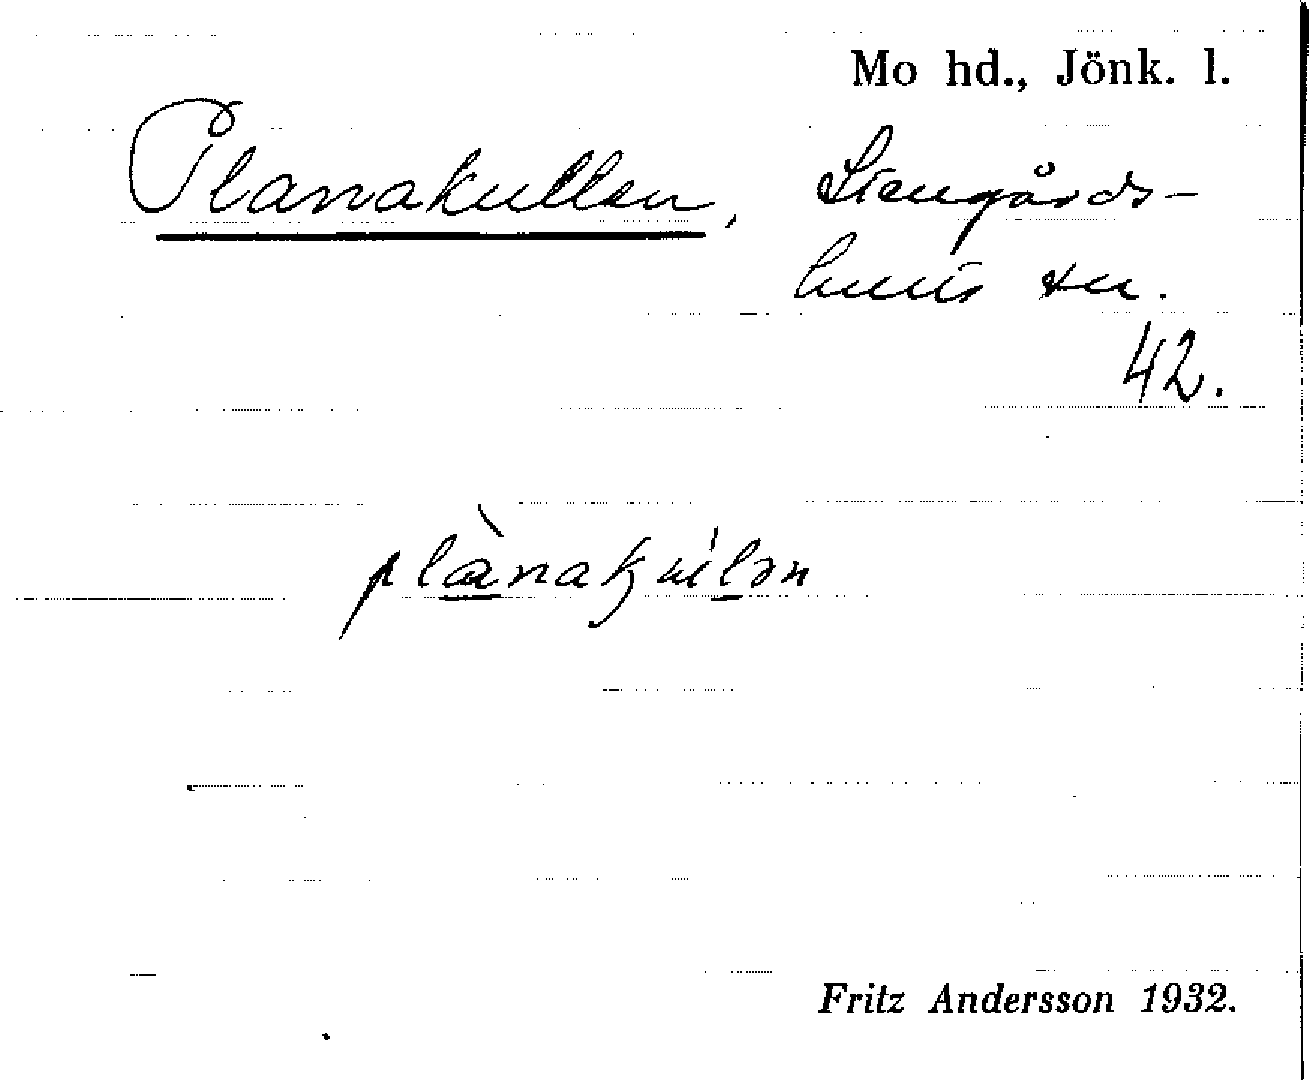 Mo hd., Jönk. l.
Planakullen, Stengårds-
hults sn.
42.
plànakúlən
Fritz Andersson 1932.